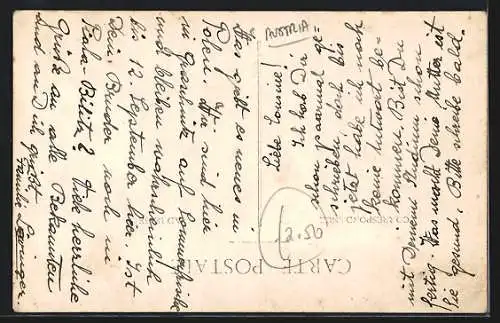 Liebe !
Ich hab Dir
schon paarmal ge-
schrieben, doch bis
jetzt habe ich noch
keine Antwort be-
kommen. Bist Du
mit Deinem Studium schon
fertig. Was macht Deine Mutter ist
sie gesund. Bitte schreibe bald.
Was gibt es neues in
Polen. Wir sind hier
in auf Sommerfrische
und bleiben wahrscheinlich
bis 12. September hier. Ist
Dein Bruder noch in
Biala-Bilitz? Viele herrliche
Grüße an alle Bekannten
und an Dich grüßt
Familie
AUSTRIA
2.50
CARTE POSTALE
CORRESPONDANCE